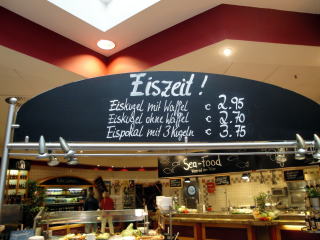 Eiszeit !
Eiskugel mit Waffel € 2.95
Eiskugel ohne Waffel € 2.70
Eispokal mit 3 Kugeln € 3.75
Sea-food